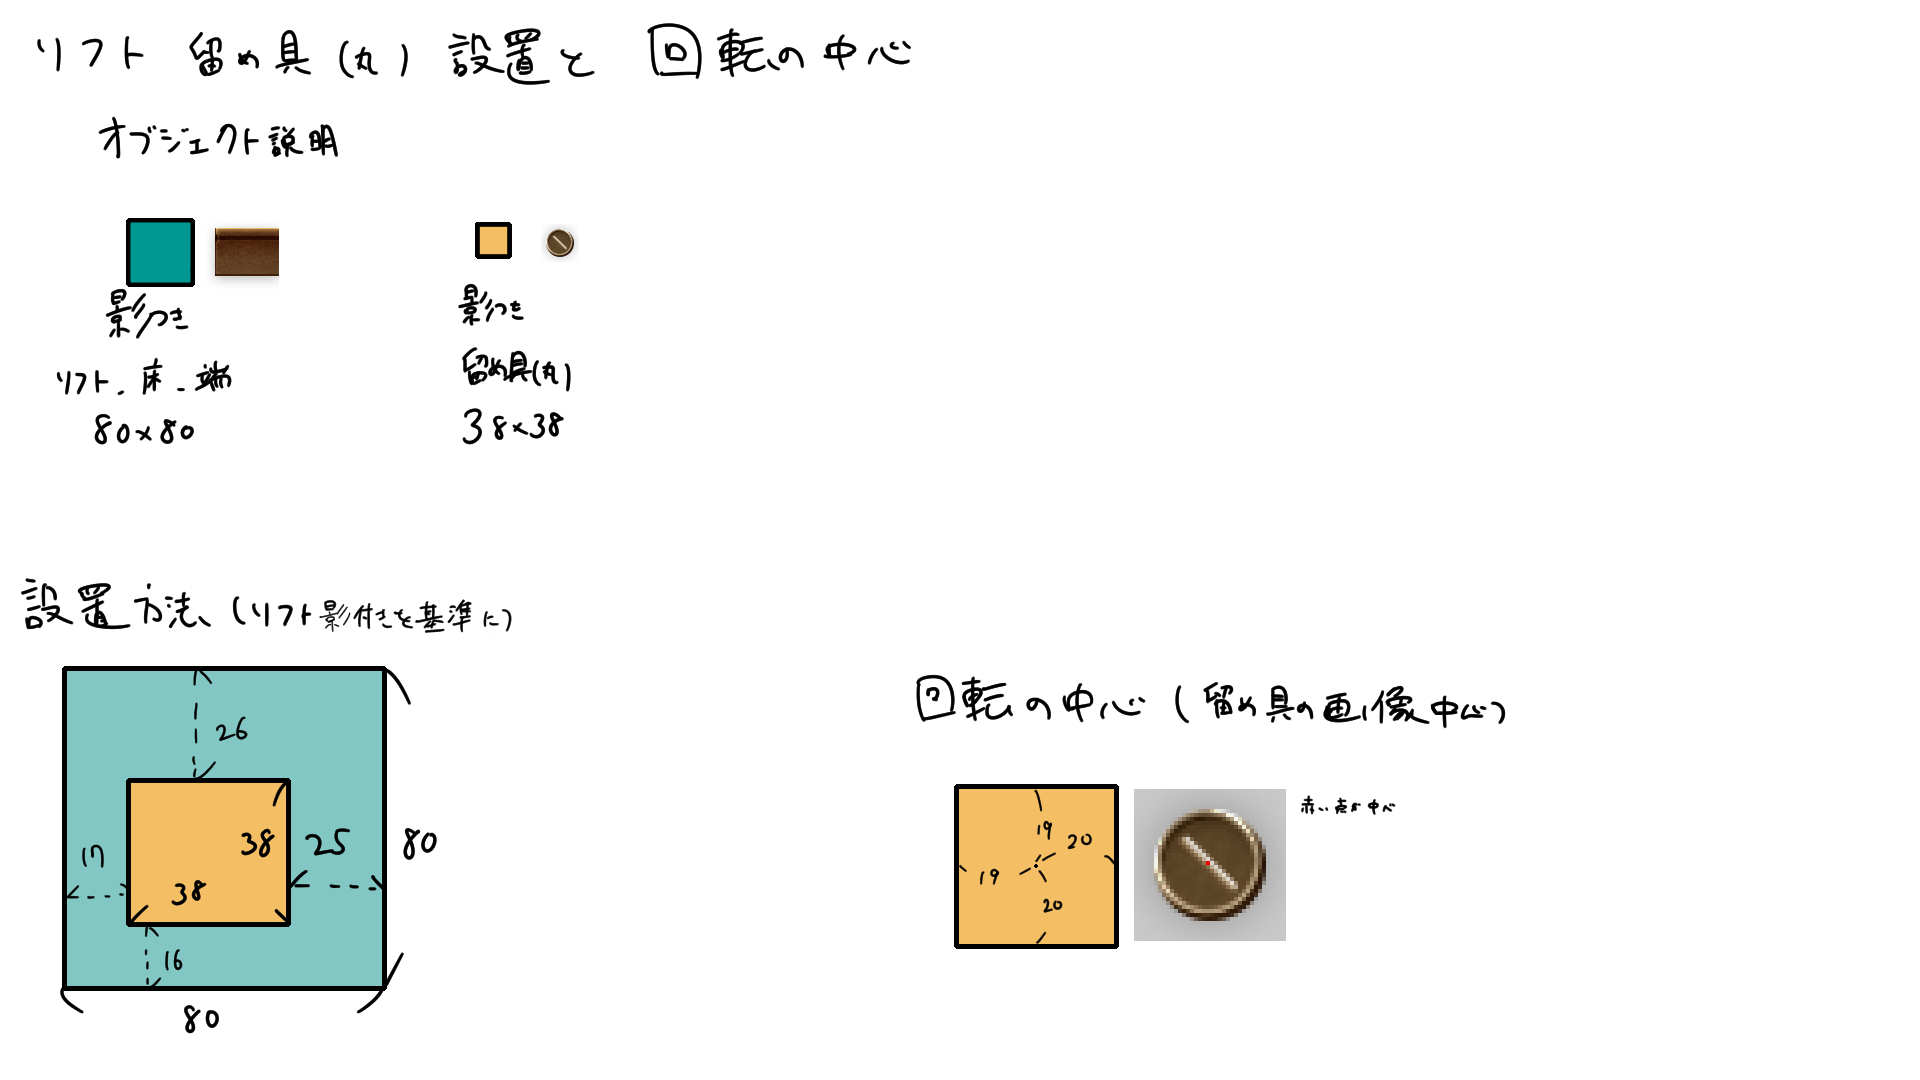 リフト 留め具(丸) 設置と 回転の中心
オブジェクト説明
影つき
リフト_床_端
80×80
影つき
留め具(丸)
38×38
設置方法、(リフト影付きを基準に)
26
38
25
80
17
38
16
80
回転の中心(留め具の画像中心)
19
20
19
20
赤い点が中心